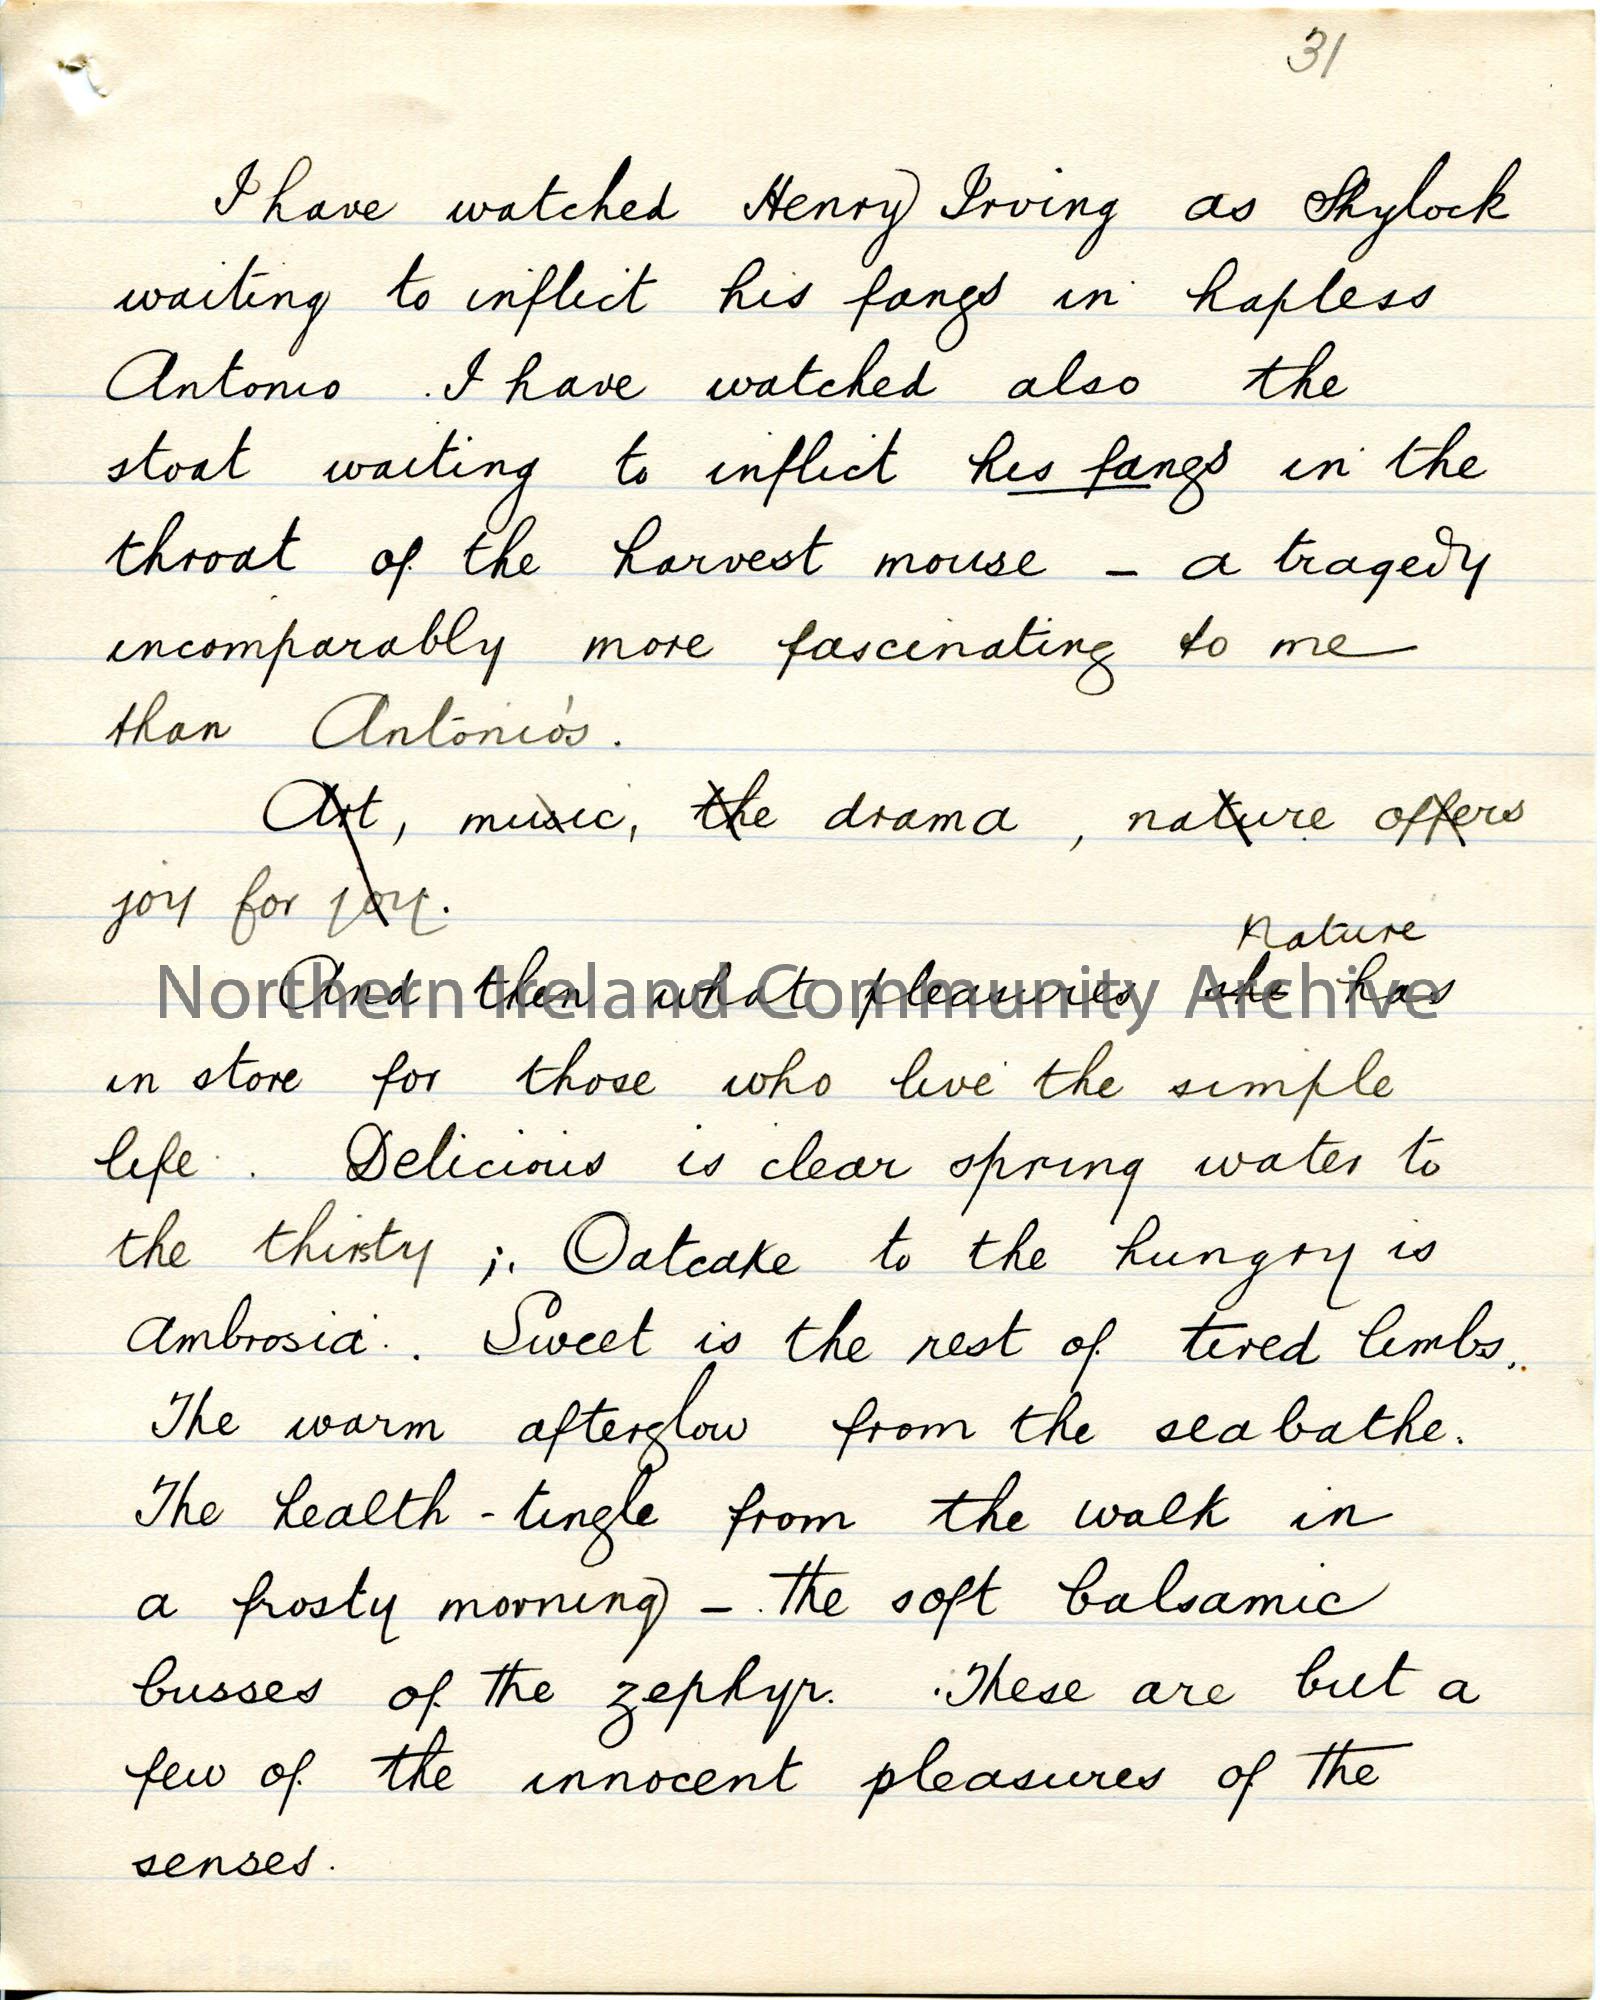 31
I have watched Henry Irving as Shylock
waiting to inflict his fangs in hapless
Antonio . I have watched also the
stoat waiting to inflict his fangs in the
throat of the harvest mouse – a tragedy
incomparably more fascinating to me
than Antonio's.
Art, music, the drama , nature offers
joy for joy.
Nature
And then what pleasures she has
Northern Ireland Community Archive
in store for those who live the simple
life . Delicious is clear spring water to
the thirsty ; Oatcake to the hungry is
Ambrosia . Sweet is the rest of tired limbs.
The warm afterglow from the sea bathe.
The health - tingle from the walk in
a frosty morning – the soft balsamic
busses of the zephyr. These are but a
few of the innocent pleasures of the
senses.